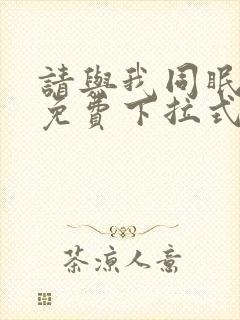 請與我同眠
免費下拉式
茶涼人意